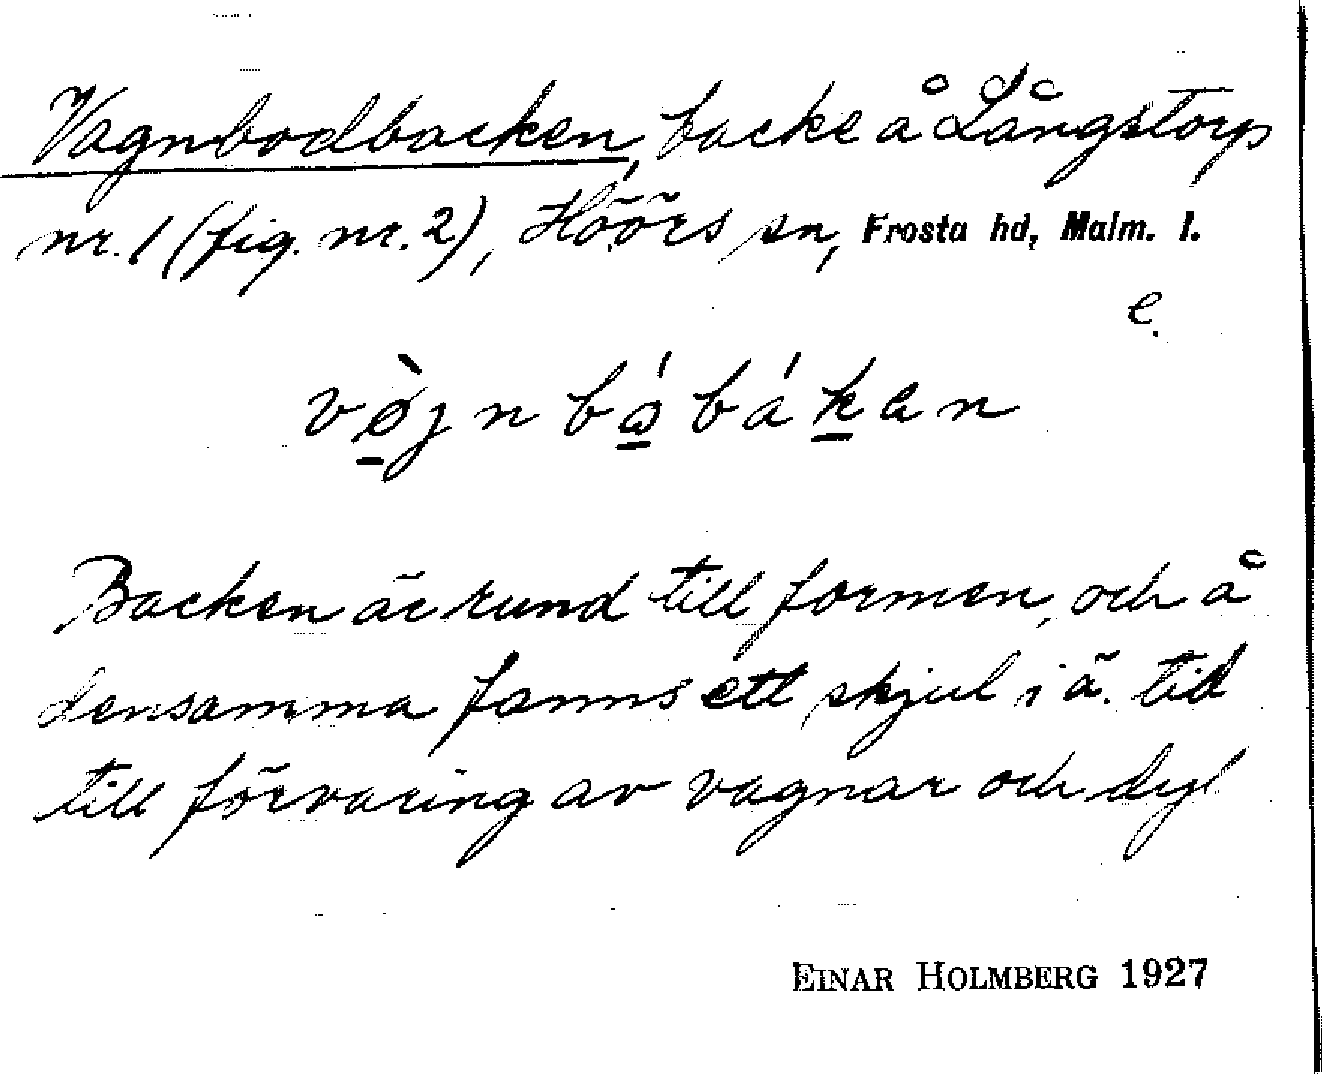 Vagnbodbacken, backe å Långstorp
nr. 1 (fig. nr. 2), Höörs sn, Frosta hd, Malm. l.
e.
vø̀jn bá̱ bá ḵ e n
Backen är rund till formen, och å
densamma fanns ett skjul i ä. tid
till förvaring av vagnar och dyl
EINAR HOLMBERG 1927